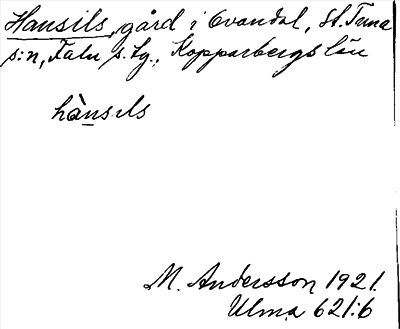 Hansils, gård i Ovandal, St. Tuna
s:n, Falu s. lg., Kopparbergs län
hànsıls
M. Andersson 1921.
Ulma 621:6